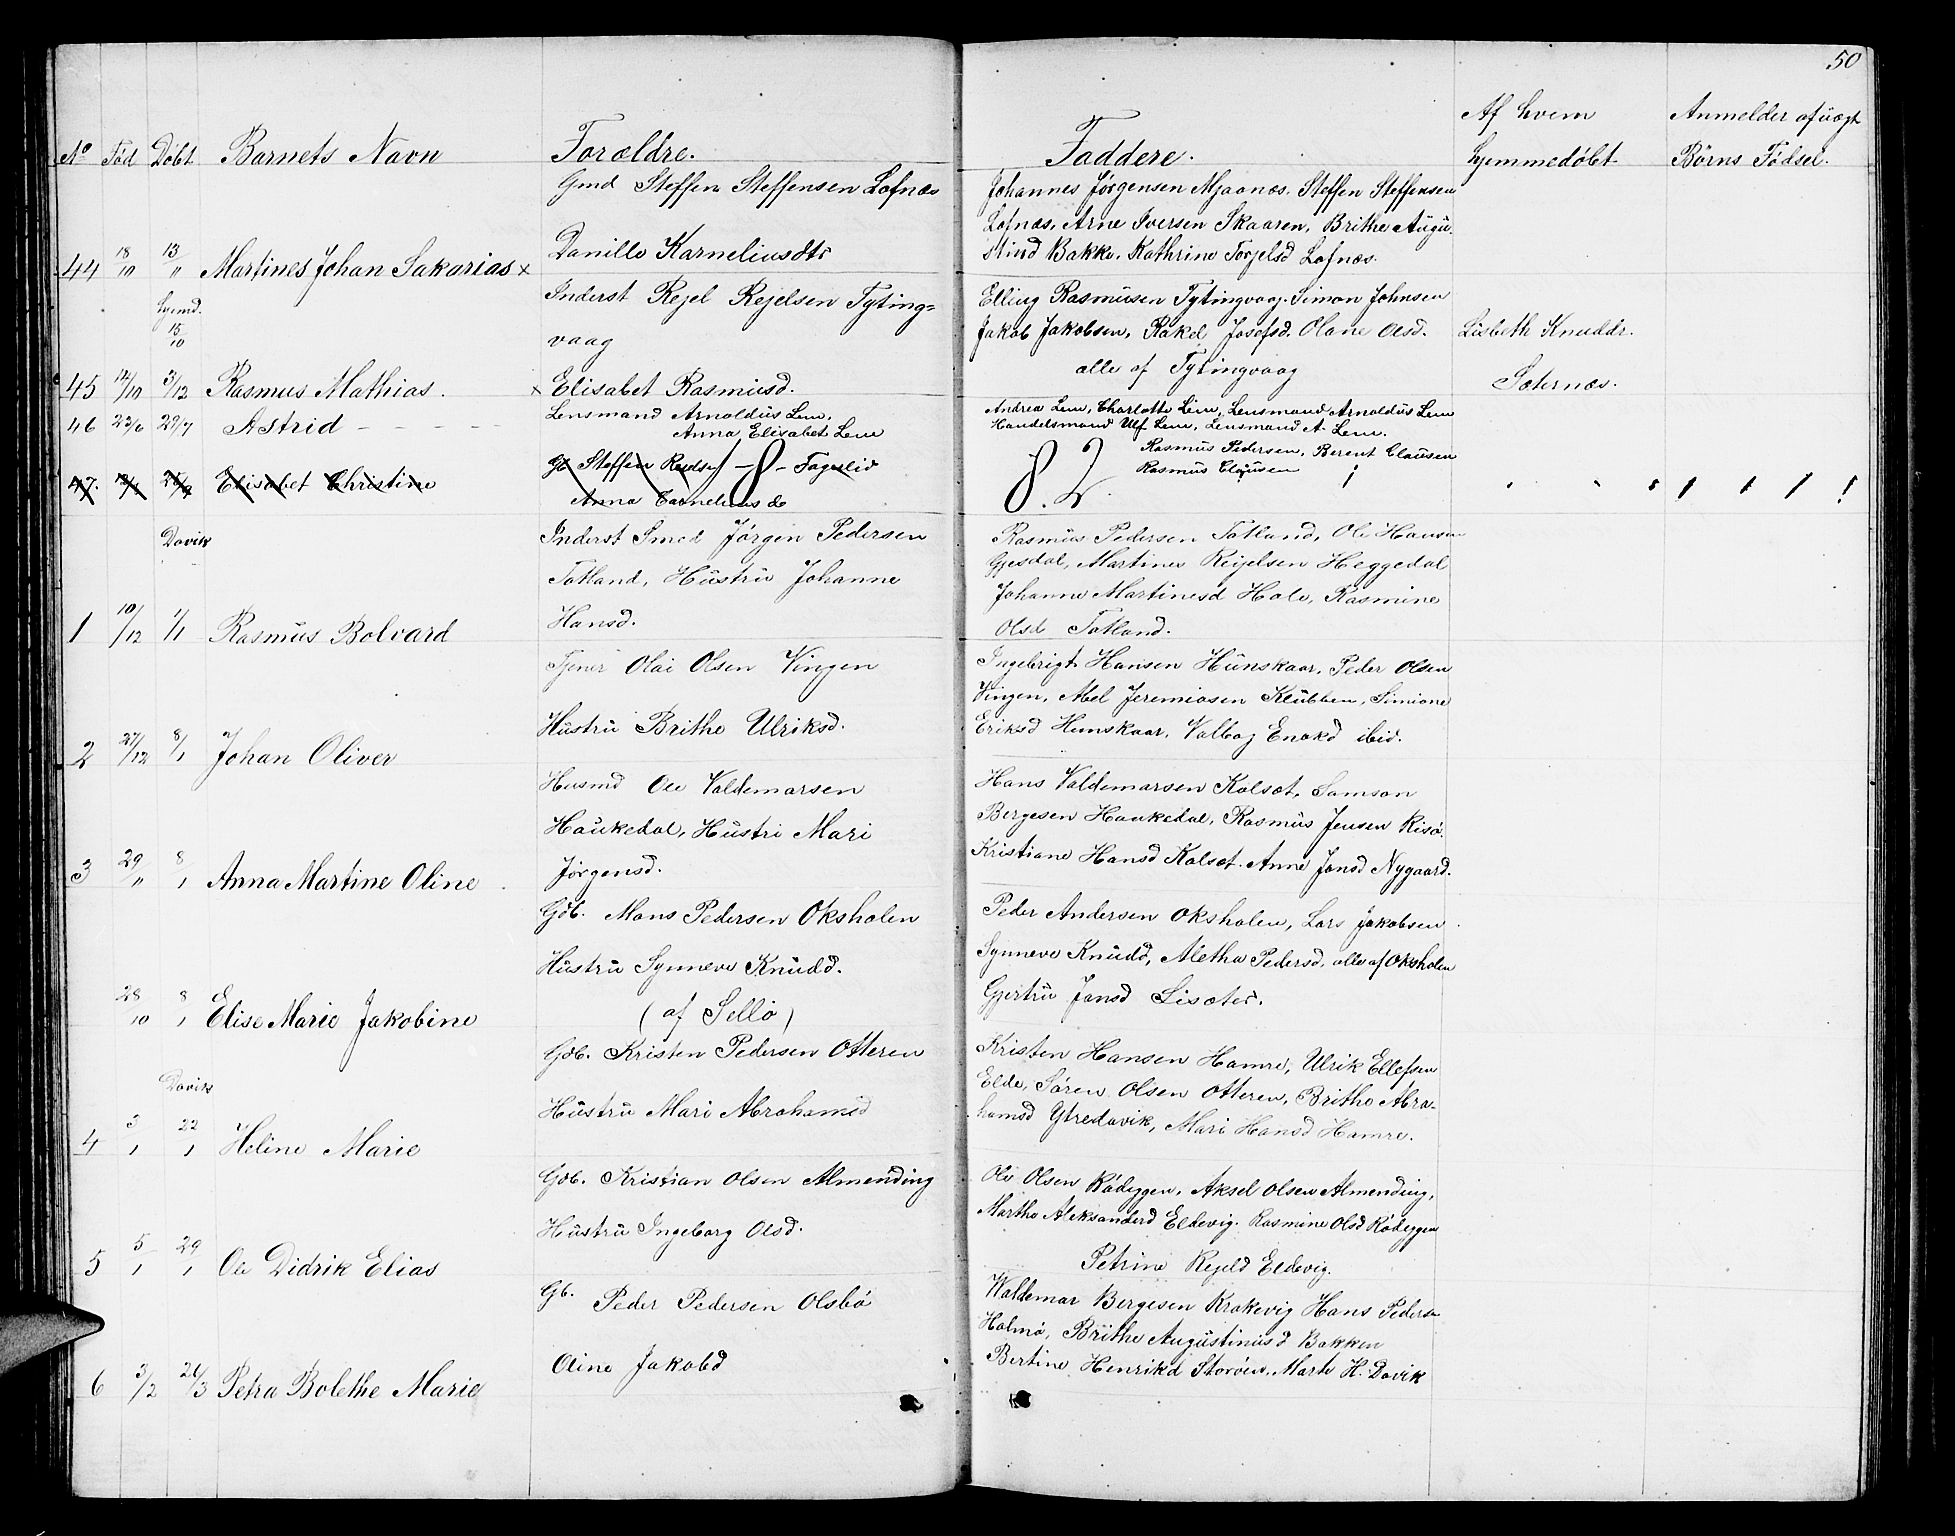 50
No Fød Døbt Barnets Navn Forældre. Faddere. Af hvem hjemmedøbt Anmelder af uægt Børns Fødsel.
44 18/10 13/11 Martines Johan Sakarias x
Gmd Steffen Steffensen Lofnæs
Danille Karneliusdtr
Johannes Jørgensen Mjaanæs, Steffen Steffensen
Lofnæs, Arne Iversen Skaaren, Brithe Augu-
stind Bakke, Kathrine Torjelsd Lofnæs.
hjemd. 15/10
45 14/10 3/12 Rasmus Mathias.
Inderst Rejel Rejelsen Tyting-
vaag
x Elisabet Rasmusd.
Elling Rasmusen Tytingvaag. Simon Johnsen
Jakob Jakobsen, Rakel Josefsd. Olane Olsd.
alle af Tytingvaag
Lisbeth Knuddr.
Sæternæs.
46 23/6 29/7 Astrid - - - -
Lensmand Arnoldus Lem,
Anna Elisabet Lem
Andrea Lem, Charlotte Lem, Lensmand Arnoldus Lem
Handelsmand Ulf Lem, Lensmand A. Lem.
47. Elisabet Christine
Gb Steffen - 8 - Fagerlid
Anna Cornelius do
8. 2.
Rasmus Pedersen, Berent Clausen
Rasmus Clausen
Davik
1 10/12 1/1 Rasmus Bolvard
Inderst Smed Jørgen Pedersen
Totland, Hustru Johanne
Hansd.
Rasmus Pedersen Totland, Ole Hansen
Gjesdal, Martines Reijelsen Heggedal
Johanne Martinesd Hole, Rasmine
Olsd Totland.
2 27/12 8/1 Johan Oliver
Tjener Olai Olsen Vingen
Hustru Brithe Ulriksd.
Ingebrigt Hansen Hünskaar, Peder Olsen
Vingen, Abel Jeremiasen Klubben, Simione
Eriksd Hunskaar, Valbog Enokd ibid.
3 29/11 8/1 Anna Martine Oline
Husmd Ole Valdemarsen
Haukedal, Hustri Mari
Jørgensd.
Hans Valdemarsen Kalsæt, Samson
Bergesen Haukedal, Rasmus Jensen Risø.
Kristiane Hansd Kalsæt. Anne Jansd Nygaard.
28/10 8/1 Elise Marie Jakobine
Gdb. Mons Pedersen Oksholen
Hustru Synneve Knudd.
(af Sellø)
Peder Andersen Oksholen, Lars Jakobsen
Synneve Knudd, Aletha Pedersd, alle af Oksholen
Gjertru Jansd Lisæter.
Davik
4 3/1 22/1 Heline Marie
Gdb. Kristen Pedersen Otteren
Hustru Mari Abrahamsd
Kristen Hansen Hamre, Ulrik Ellefsen
Elde, Søren Olsen Otteren, Brithe Abra-
hamsd Ytredavik, Mari Hansd Hamre.
5 5/1 29/1 Ole Didrik Elias
Gdb. Kristian Olsen Almending
Hustru Ingeborg Olsd.
Ole Olsen Rødeggen, Aksel Olsen Almending,
Marthe Aleksanderd Eldevig. Rasmine Olsd Rødeggen
Petrine Rejeld Eldevig.
6 3/2 26/3 Petra Bolethe Marie
Gb. Peder Pedersen Olsbø
Oline Jakobd
Waldemar Bergesen Krakevig Hans Peders
Holmø, Brithe Augustinusd Bakken
Bertine Henrikd Storøen, Marte H. Davik